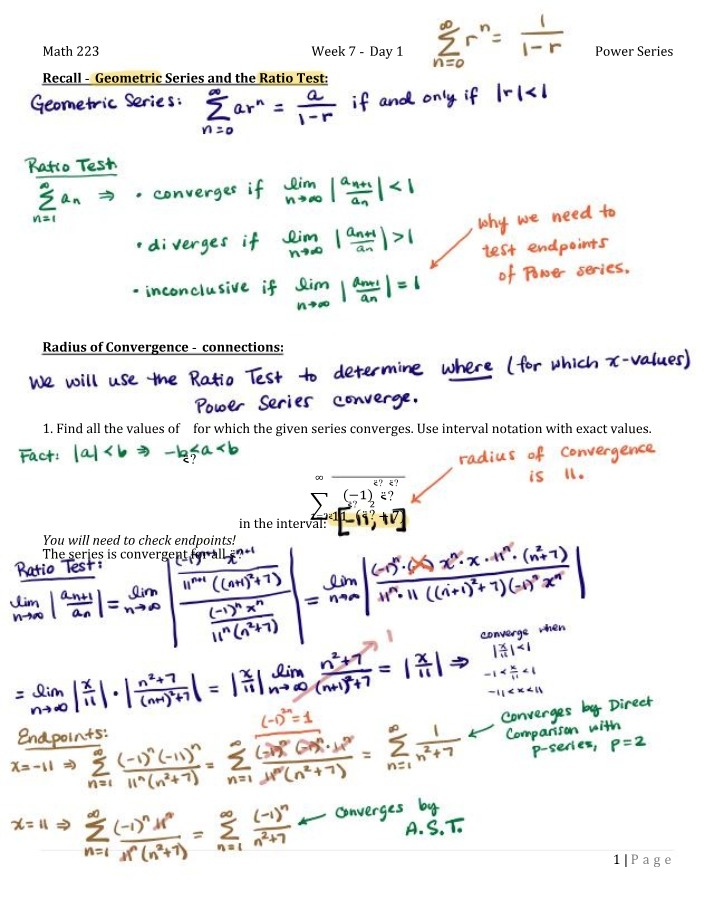 ∞
∑ rⁿ = 1/(1-r)
n=0
Math 223 Week 7 - Day 1 Power Series
Recall - Geometric Series and the Ratio Test:
Geometric Series: ∞∑n=0 arⁿ = a/(1-r) if and only if |r|<1
Ratio Test
∞∑n=1 aₙ ⇒ • converges if lim n→∞ |aₙ₊₁/aₙ| < 1
• diverges if lim n→∞ |aₙ₊₁/aₙ| > 1
• inconclusive if lim n→∞ |aₙ₊₁/aₙ| = 1
why we need to
test endpoints
of Power series.
Radius of Convergence - connections:
We will use the Ratio Test to determine where (for which x-values)
Power Series converge.
1. Find all the values of for which the given series converges. Use interval notation with exact values.
Fact: |a| < b ⇒ -b < a < b
radius of convergence
is 11.
∞
∑ (-1)
in the interval: [-11, 11]
You will need to check endpoints!
The series is convergent for all
Ratio Test:
lim n→∞ |aₙ₊₁/aₙ| = lim n→∞ |((-1)ⁿ⁺¹xⁿ⁺¹/(11ⁿ⁺¹((n+1)²+7)))/((-1)ⁿxⁿ/(11ⁿ(n²+7)))| = lim n→∞ |((-1)ⁿ·(-1)·xⁿ·x·11ⁿ·(n²+7))/(11ⁿ·11((n+1)²+7)(-1)ⁿxⁿ)|
= lim n→∞ |x/11|·|(n²+7)/((n+1)²+7)| = |x/11| lim n→∞ (n²+7)/((n+1)²+7) = |x/11| ⇒
1
converge when
|x/11|<1
-1<x/11<1
-11<x<11
Endpoints:
(-1)²ⁿ=1
x=-11 ⇒ ∞∑n=1 (-1)ⁿ(-11)ⁿ/(11ⁿ(n²+7)) = ∞∑n=1 (-1)ⁿ(-1)ⁿ·11ⁿ/(11ⁿ(n²+7)) = ∞∑n=1 1/(n²+7)
Converges by Direct
Comparison with
p-series, p=2
x=11 ⇒ ∞∑n=1 (-1)ⁿ11ⁿ/(11ⁿ(n²+7)) = ∞∑n=1 (-1)ⁿ/(n²+7)
Converges by
A.S.T.
1 | Page